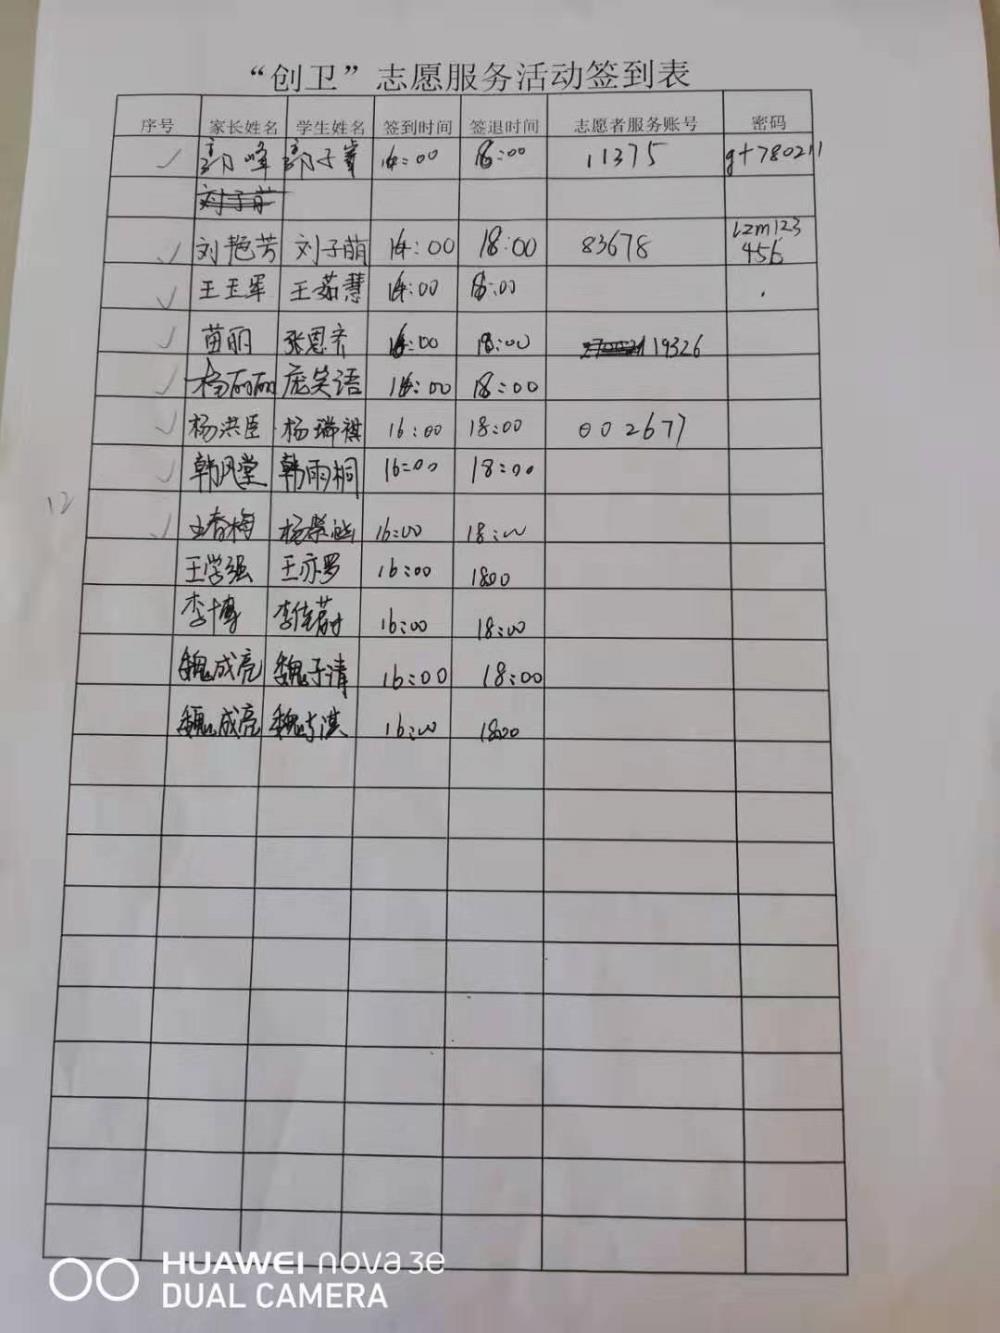 “创卫”志愿服务活动签到表
序号 家长姓名 学生姓名 签到时间 签退时间 志愿者服务账号 密码
郭峰 郭子 16:00 18:00 11375
刘艳芳 刘子萌 16:00 18:00 83678 lzm123
456
王玉军 王茹慧 16:00 18:00
苗丽 张恩齐 16:00 18:00 19326
杨丽丽 庞笑语 16:00 18:00
杨洪臣 杨瑞祺 16:00 18:00 002677
韩风堂 韩雨桐 16:00 18:00
王春梅 16:00 18:00
12
王学强 王亦罗 16:00 1800
李博 李佳蔚 16:00 18:00
魏成亮 魏子清 16:00 18:00
魏成亮 魏 淇 16:00 1800
HUAWEI nova 3e
DUAL CAMERA